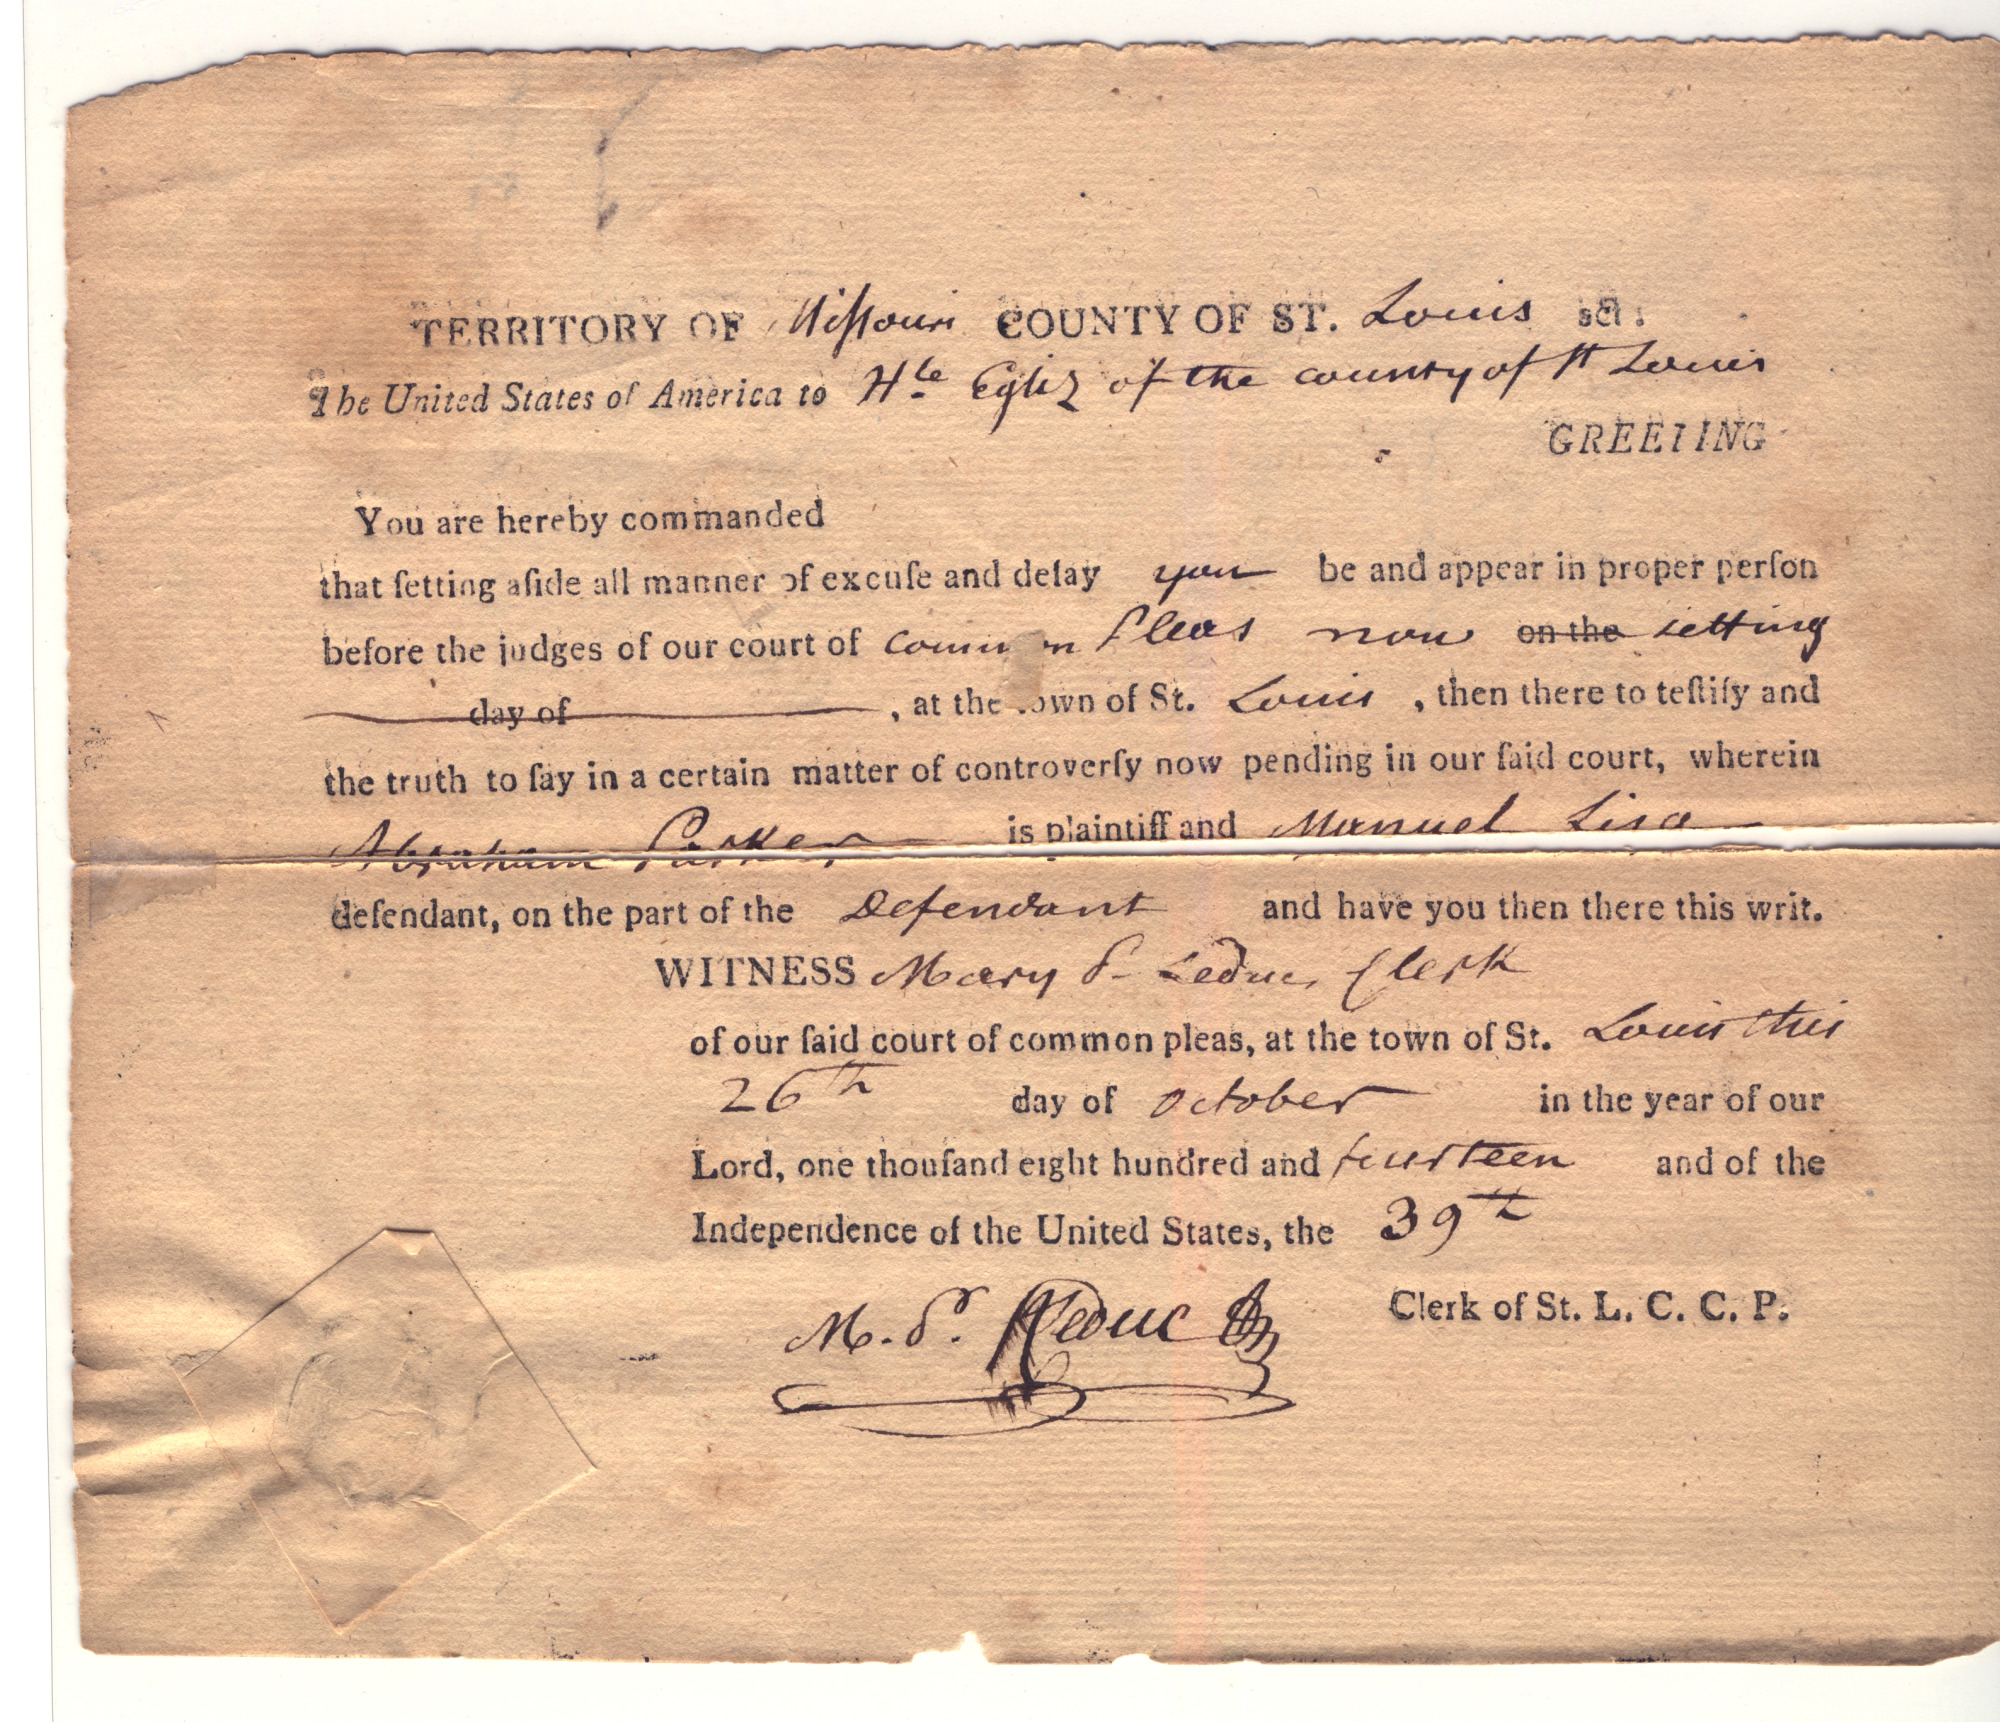 TERRITORY OF Missouri COUNTY OF ST. Louis sct.
The United States of America to Hte Egliz of the county of St Louis
GREETING
You are hereby commanded
that ſetting aſide all manner of excuſe and delay you be and appear in proper perſon
before the judges of our court of common Pleas now on the setting
day of , at the town of St. Louis , then there to teſtify and
the truth to ſay in a certain matter of controverſy now pending in our ſaid court, wherein
Abraham Parker is plaintiff and Manuel Lisa
defendant, on the part of the Defendant and have you then there this writ.
WITNESS Mary P. Leduc, Clerk
of our ſaid court of common pleas, at the town of St. Louis this
26th day of October in the year of our
Lord, one thouſand eight hundred and fourteen and of the
Independence of the United States, the 39th
M. P. Leduc Clerk of St. L. C. C. P.